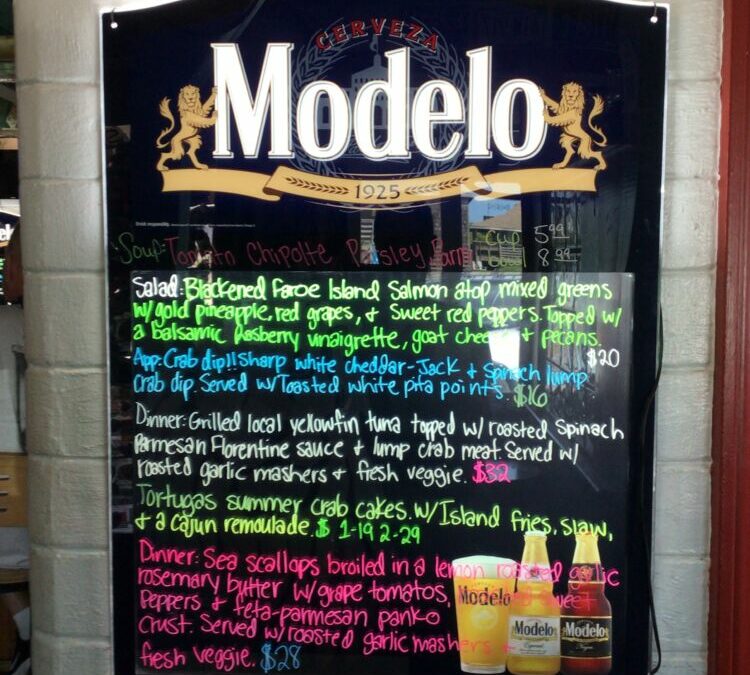 CERVEZA
Modelo
1925
Soup: Tomato Chipolte Parsley Parm cup 5.99
8.99
Salad: Blackened Faroe Island Salmon atop mixed greens
w/gold pineapple, red grapes, & sweet red peppers. Topped w/
a balsamic Rasberry vinaigrette, goat cheese & pecans.
$20
App: Crab dip!! Sharp white cheddar-Jack & Spinach lump
Crab dip. Served w/Toasted white pita points. $16
Dinner: Grilled local yellowfin tuna topped w/ roasted Spinach
Parmesan Florentine sauce & lump crab meat. Served w/
roasted garlic mashers & fresh veggie. $32
Tortugas summer crab cakes. w/Island fries, slaw,
& a cajun remoulade. $ 1-19 2-29
Dinner: Sea scallops broiled in a lemon roasted garlic
rosemary butter w/grape tomatos, sweet
Peppers & feta-parmesan panko
Crust. Served w/roasted garlic mashers &
fresh veggie. $28
Modelo
Modelo
Especial
Modelo
Negra